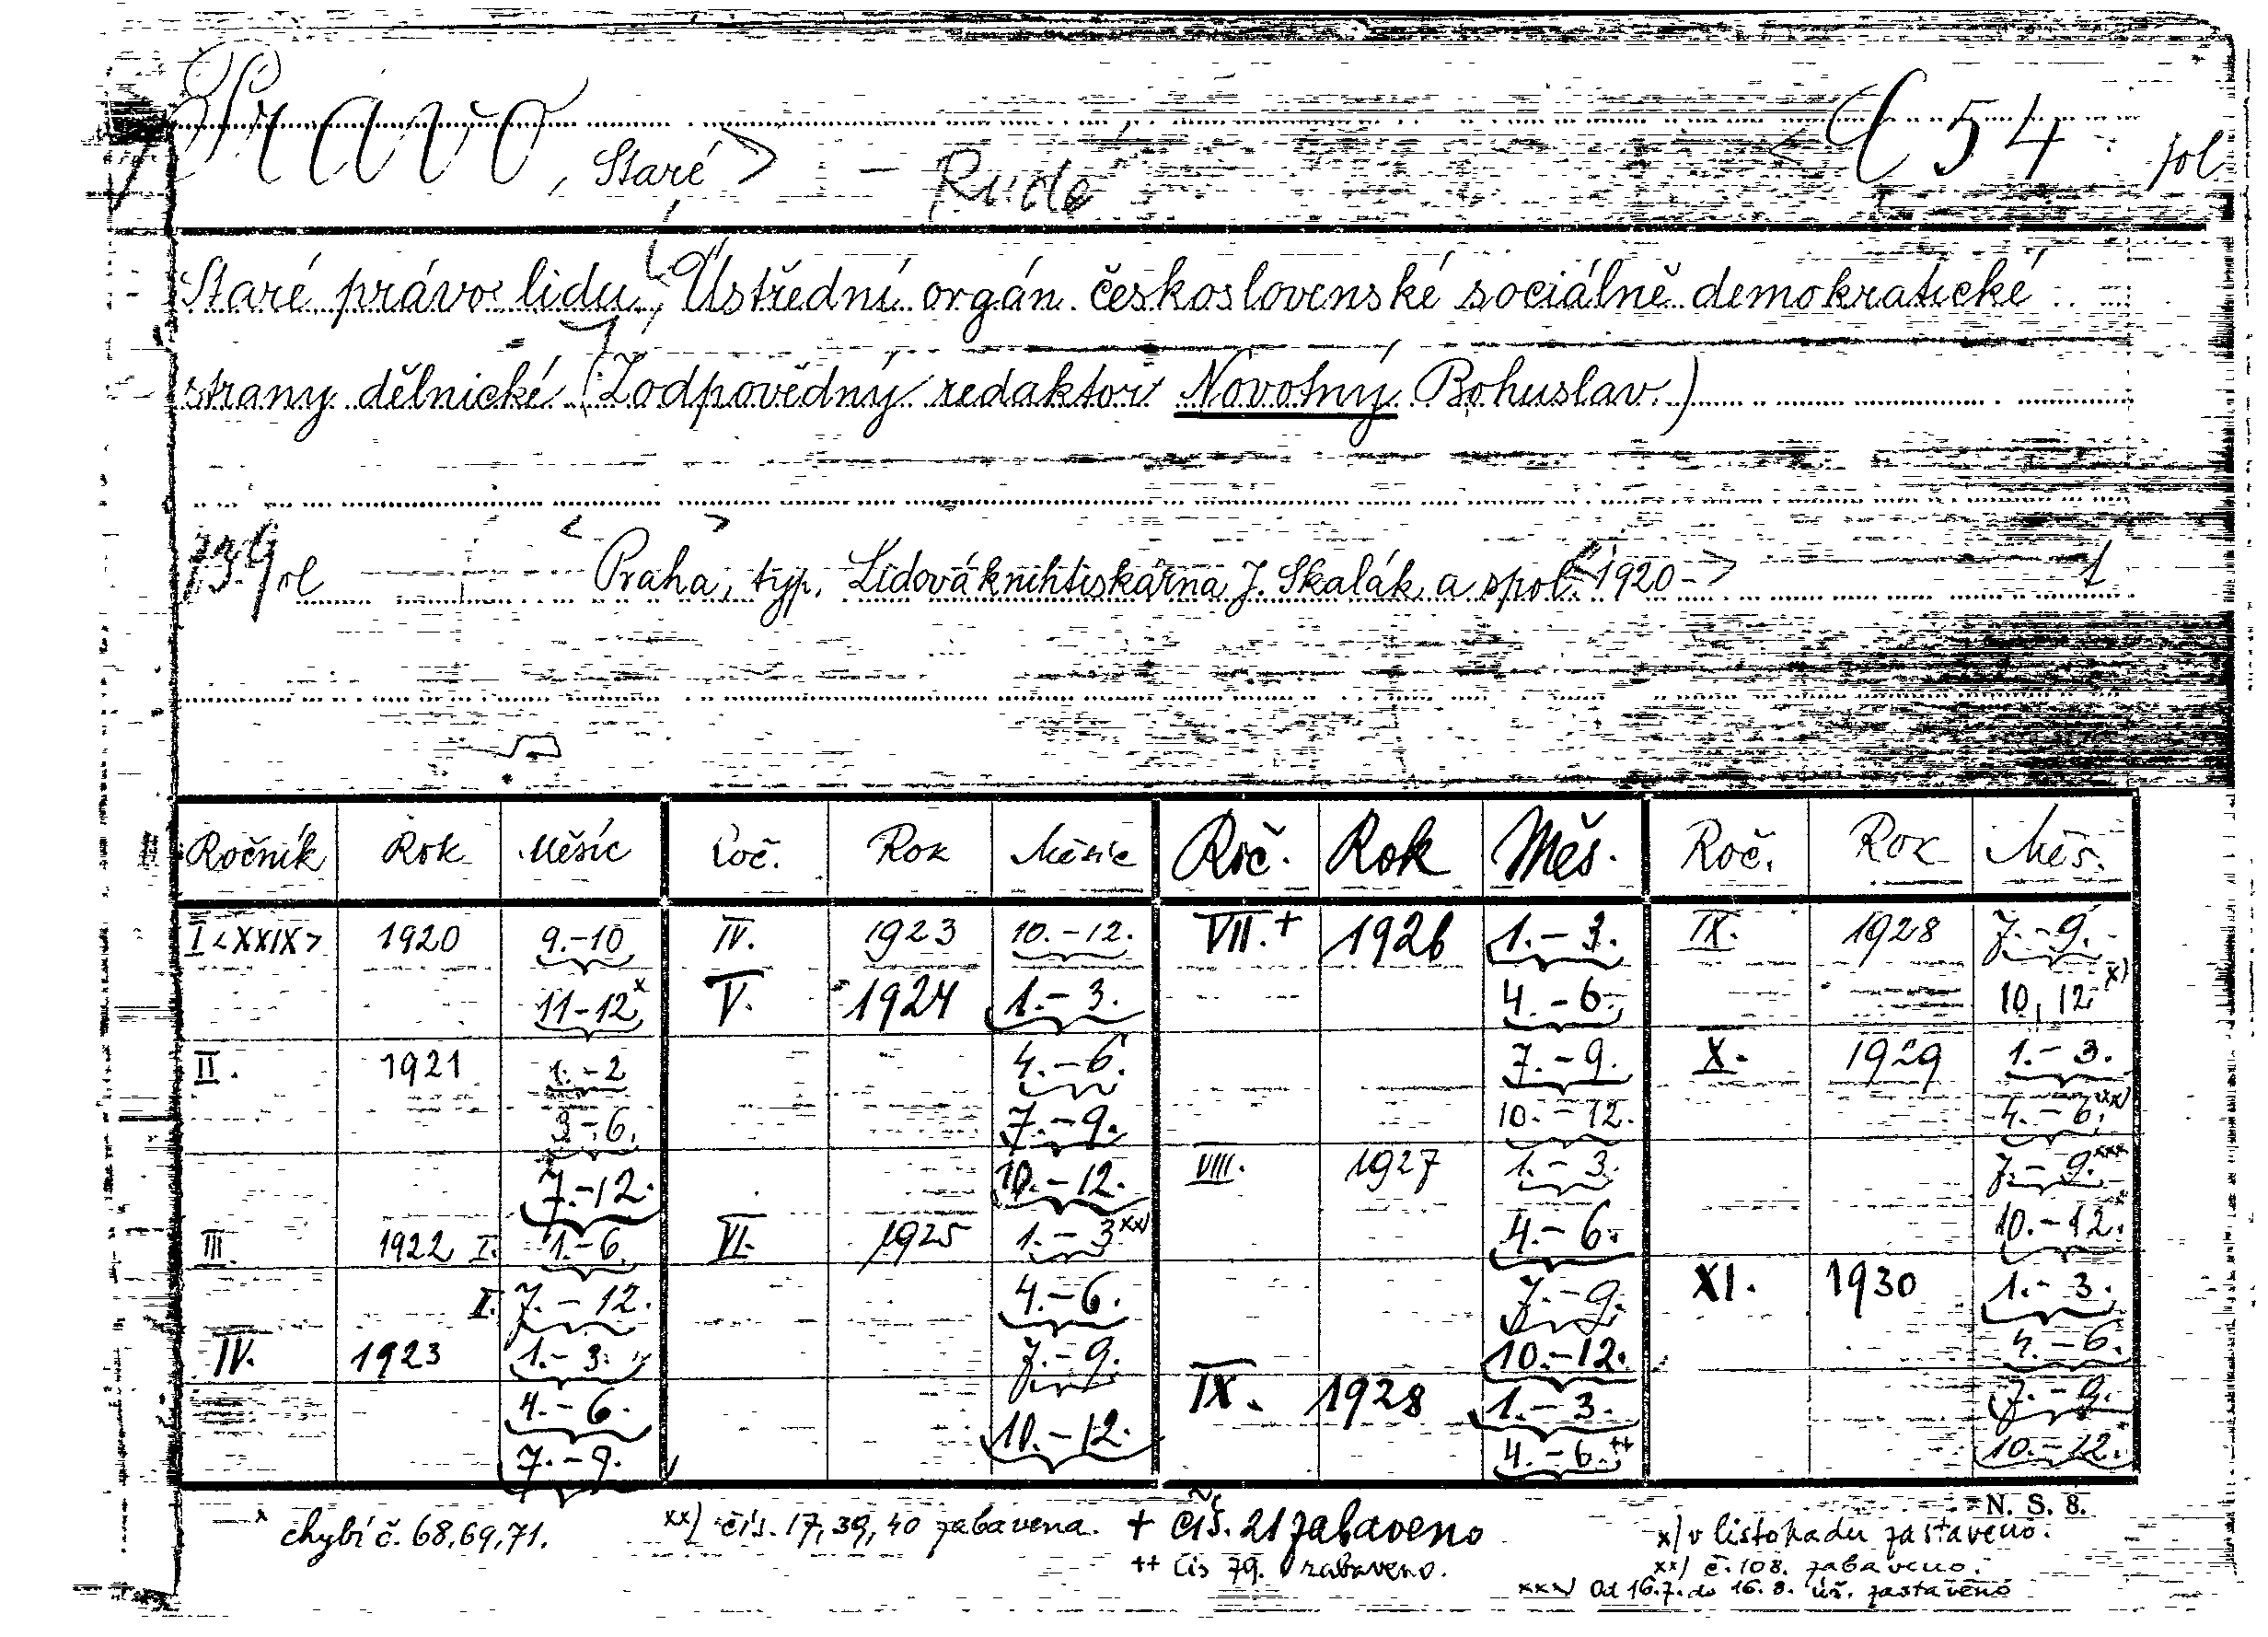 Právo, Staré > - Rudé < C 54 fol
Staré právo lidu, Ústřední orgán československé sociálně demokratické
strany dělnické (Zodpovědný redaktor Novotný Bohuslav.)
< >
Praha, typ. Lidová knihtiskárna J. Skalák a spol. <1920->
Ročník Rok Měsíc Roč. Rok Měsíc Roč. Rok Měs. Roč. Rok Měs.
I <XXIX> 1920 9.-10 IV. 1923 10.-12. VII.+ 1926 1.-3. IX. 1928 7.-9.
11-12x V. 1924 1.-3. 4.-6. 10, 12 x)
II. 1921 1.-2 4.-6. 7.-9. X. 1929 1.-3.
3-6. 7.-9. 10.-12. 4.-6. xx)
7.-12. 10.-12. VIII. 1927 1.-3. 7.-9. xxx
III. 1922 I. 1.-6. VI. 1925 1.-3 xx) 4.-6. 10.-12.
7.-12. 4.-6. 7.-9. XI. 1930 1.-3.
IV. 1923 1.-3. 7.-9. 10.-12. 4.-6.
4.-6. 10.-12. IX. 1928 1.-3. 7.-9.
7.-9. 4.-6.++ 10.-12.
N. S. 8.
x chybí č. 68,69,71. xx) čís. 17, 39, 40 zabavena. + čís. 21 zabaveno x) v listopadu zastaveno.
++ čís 79. zabaveno. xx) č. 108. zabaveno.
xxx) Od 16.7. do 16.8. úř. zastaveno